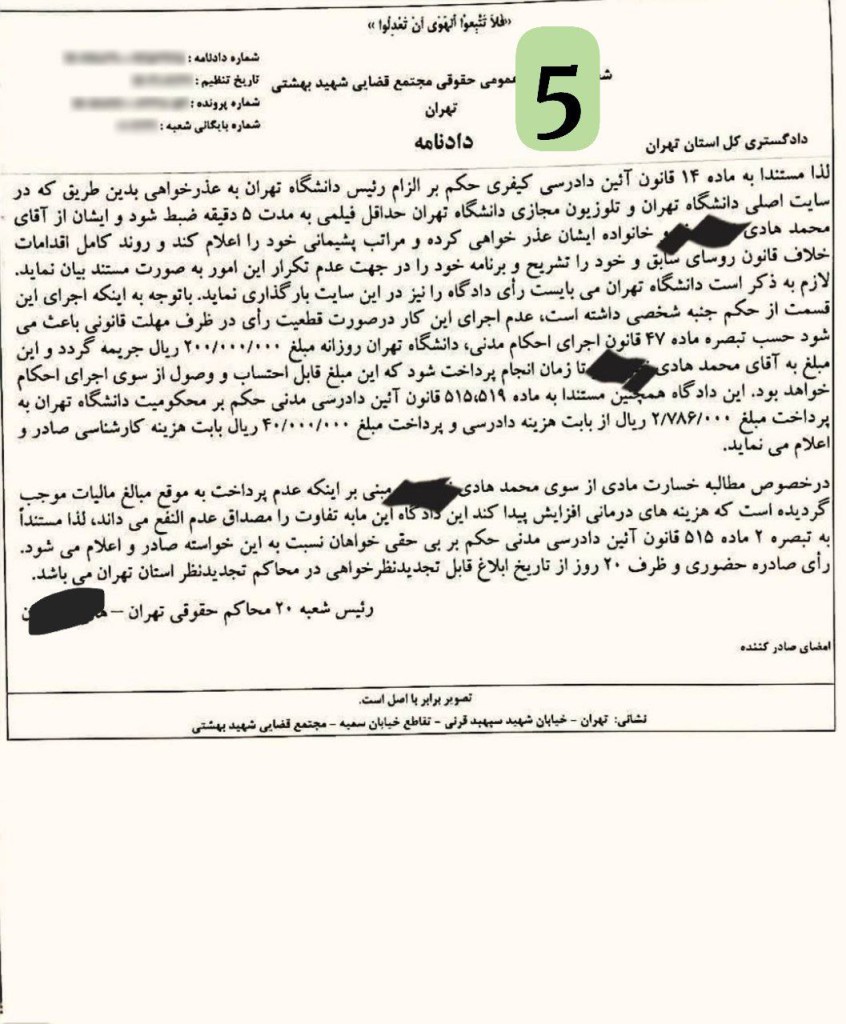 «فَلاَ تَتَّبِعُوا الْهَوَى أَنْ تَعْدِلُوا »
شماره دادنامه :
تاریخ تنظیم :
شماره پرونده :
شماره بایگانی شعبه :
5
عمومی حقوقی مجتمع قضایی شهید بهشتی
تهران
دادنامه
دادگستری کل استان تهران
لذا مستندا به ماده ۱۴ قانون آئین دادرسی کیفری حکم بر الزام رئیس دانشگاه تهران به عذرخواهی بدین طریق که در
سایت اصلی دانشگاه تهران و تلوزیون مجازی دانشگاه تهران حداقل فیلمی به مدت ۵ دقیقه ضبط شود و ایشان از آقای
محمد هادی و خانواده ایشان عذر خواهی کرده و مراتب پشیمانی خود را اعلام کند و روند کامل اقدامات
خلاف قانون روسای سابق و خود را تشریح و برنامه خود را در جهت عدم تکرار این امور به صورت مستند بیان نماید.
لازم به ذکر است دانشگاه تهران می بایست رأی دادگاه را نیز در این سایت بارگذاری نماید. باتوجه به اینکه اجرای این
قسمت از حکم جنبه شخصی داشته است، عدم اجرای این کار درصورت قطعیت رأی در ظرف مهلت قانونی باعث می
شود حسب تبصره ماده ۴۷ قانون اجرای احکام مدنی، دانشگاه تهران روزانه مبلغ ۲۰۰/۰۰۰/۰۰۰ ریال جریمه گردد و این
مبلغ به آقای محمد هادی تا زمان انجام پرداخت شود که این مبلغ قابل احتساب و وصول از سوی اجرای احکام
خواهد بود. این دادگاه همچنین مستندا به ماده ۵۱۵،۵۱۹ قانون آئین دادرسی مدنی حکم بر محکومیت دانشگاه تهران به
پرداخت مبلغ ۲/۷۸۶/۰۰۰ ریال از بابت هزینه دادرسی و پرداخت مبلغ ۴۰/۰۰۰/۰۰۰ ریال بابت هزینه کارشناسی صادر و
اعلام می نماید.
درخصوص مطالبه خسارت مادی از سوی محمد هادی مبنی بر اینکه عدم پرداخت به موقع مبالغ مالیات موجب
گردیده است که هزینه های درمانی افزایش پیدا کند این دادگاه این مابه تفاوت را مصداق عدم النفع می داند، لذا مستنداً
به تبصره ۲ ماده ۵۱۵ قانون آئین دادرسی مدنی حکم بر بی حقی خواهان نسبت به این خواسته صادر و اعلام می شود.
رأی صادره حضوری و ظرف ۲۰ روز از تاریخ ابلاغ قابل تجدیدنظرخواهی در محاکم تجدیدنظر استان تهران می باشد.
رئیس شعبه ۲۰ محاکم حقوقی تهران –
امضای صادر کننده
تصویر برابر با اصل است.
نشانی: تهران - خیابان شهید سپهبد قرنی - تقاطع خیابان سمیه - مجتمع قضایی شهید بهشتی